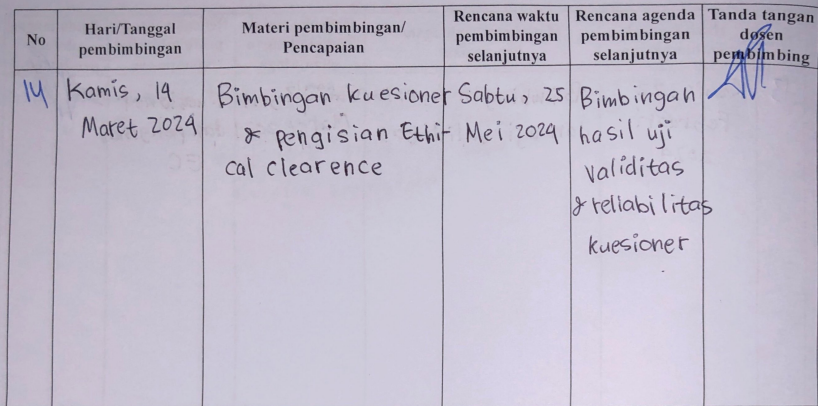 No
Hari/Tanggal
pembimbingan
Materi pembimbingan/
Pencapaian
Rencana waktu
pembimbingan
selanjutnya
Rencana agenda
pembimbingan
selanjutnya
Tanda tangan
dosen
pembimbing
14
Kamis, 14
Maret 2024
Bimbingan kuesioner
& pengisian Ethi-
cal clearence
Sabtu, 25
Mei 2024
Bimbingan
hasil uji
validitas
& reliabilitas
kuesioner